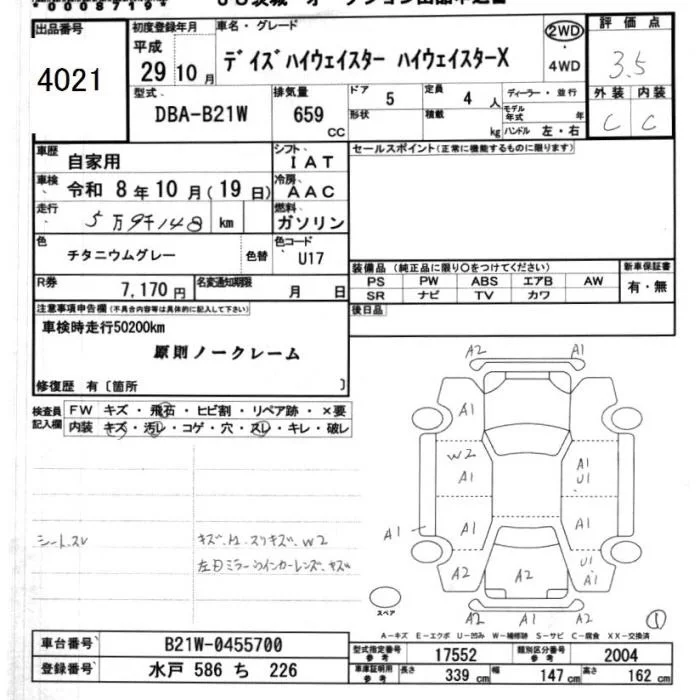 出品番号 初度登録年月 車名・グレード 2WD 評価点
4021 平成 29年10月 デイズハイウェイスター ハイウェイスターX 4WD 3.5
型式 DBA-B21W 排気量 659 CC ドア 5 定員 4 人 ディーラー・並行 外装 内装
形状 積載 kg モデル年式 年 ハンドル 左・右 C C
車歴 自家用 シフト IAT セールスポイント(正常に機能するものに限ります)
車検 令和 8 年 10 月 (19 日) 冷房 AAC
走行 5万9千148 km 燃料 ガソリン
色 チタニウムグレー 色替 色コード U17
装備品(純正品に限り○をつけてください) 新車保証書
R券 7,170 円 名変通知期限 月 日 PS PW ABS エアB AW 有・無
SR ナビ TV カワ
注意事項申告欄(不具合内容等は具体的に記入して下さい) 後日品
車検時走行50200km
原則ノークレーム
修復歴 有〔箇所 〕
検査員記入欄 FW キズ・飛石・ヒビ割・リペア跡・×要
内装 キズ・汚レ・コゲ・穴・スレ・キレ・破レ
A2 A1
A1
W2 A1 A1 U1
A1 A1 A1
A2 A2 U1 A1
シートスレ キズ、スリキズ、W2
左ドミラーウインカーレンズ、キズ
スペア A2 A2 1
A－キズ E－エクボ U－凹み W－補修跡 S－サビ C－腐食 XX－交換済
車台番号 B21W-0455700 型式指定番号 参考 17552 類別区分番号 参考 2004
登録番号 水戸 586 ち 226 車庫証明用 参考 長さ 339 cm 幅 147 cm 高さ 162 cm